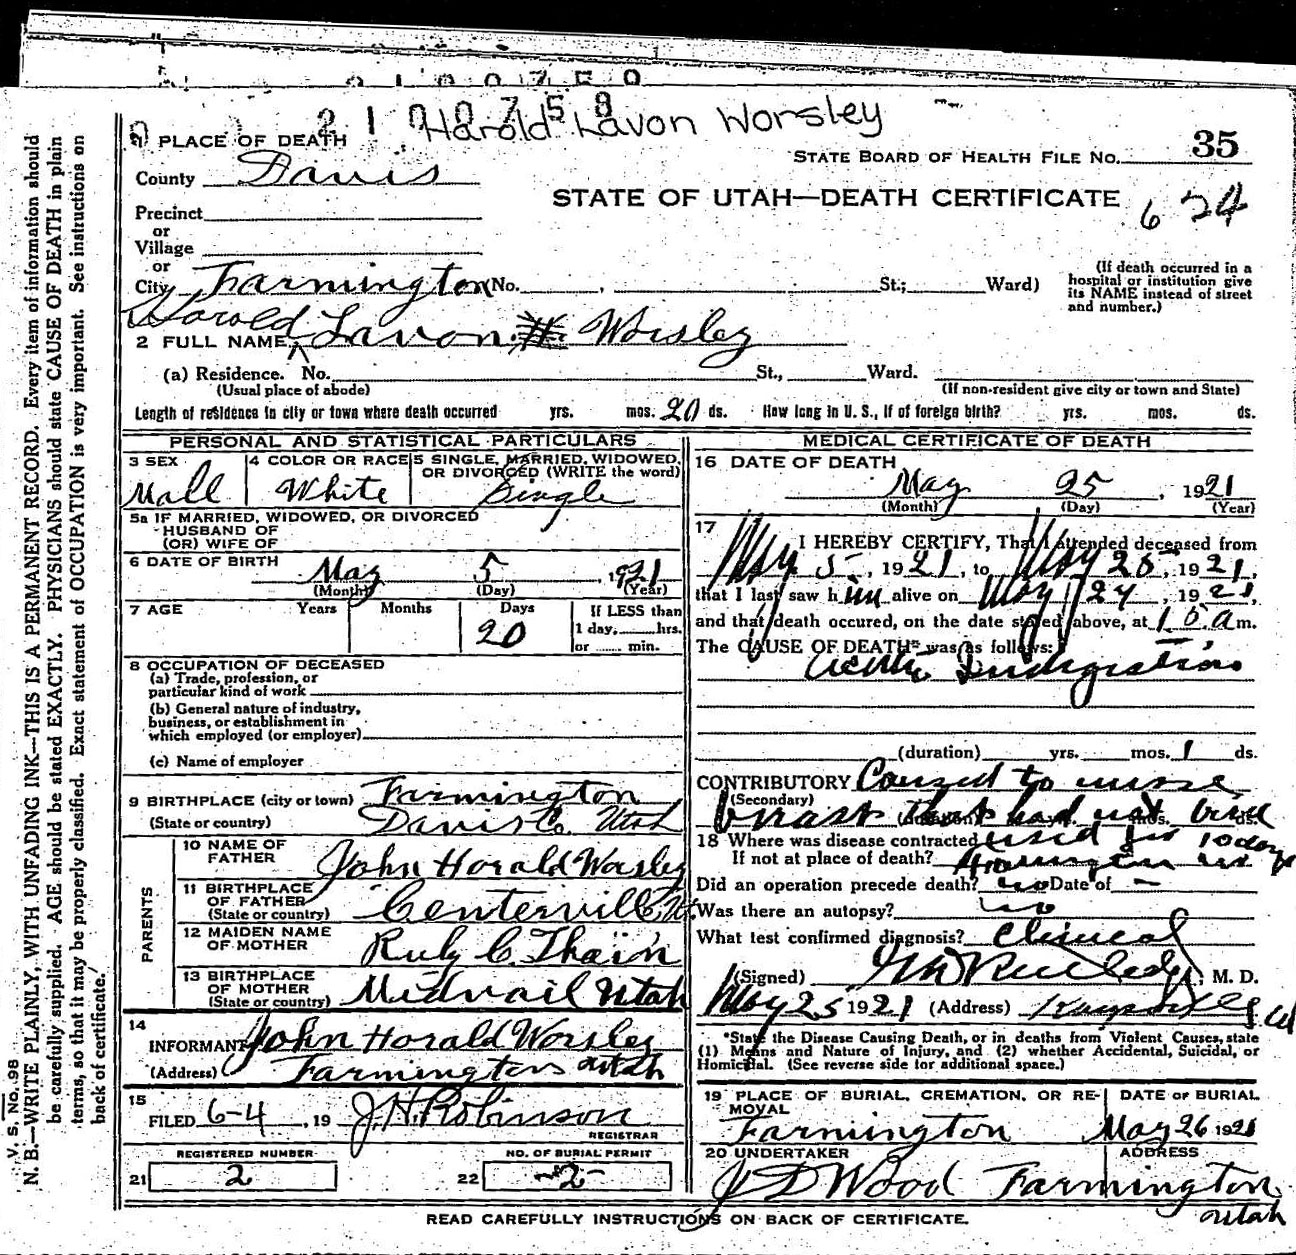 2100758
Harold Lavon Worsley
1 PLACE OF DEATH
STATE BOARD OF HEALTH FILE NO. 35
County Davis
STATE OF UTAH—DEATH CERTIFICATE 624
Precinct
or
Village
or
City Farmington No. , St.; Ward)
(If death occurred in a hospital or institution give its NAME instead of street and number.)
Harold
2 FULL NAME Lavon Worsley
(a) Residence. No. St., Ward.
(Usual place of abode) (If non-resident give city or town and State)
Length of residence in city or town where death occurred yrs. mos. 20 ds. How long in U. S., if of foreign birth? yrs. mos. ds.
PERSONAL AND STATISTICAL PARTICULARS
3 SEX 4 COLOR OR RACE 5 SINGLE, MARRIED, WIDOWED, OR DIVORCED (WRITE the word)
Mall White Single
5a IF MARRIED, WIDOWED, OR DIVORCED
HUSBAND OF
(OR) WIFE OF
6 DATE OF BIRTH May 5, 1921
(Month) (Day) (Year)
7 AGE Years Months Days If LESS than
20 1 day, hrs.
or min.
8 OCCUPATION OF DECEASED
(a) Trade, profession, or
particular kind of work
(b) General nature of industry,
business, or establishment in
which employed (or employer)
(c) Name of employer
9 BIRTHPLACE (city or town) Farmington
(State or country) Davis Co. Utah
PARENTS
10 NAME OF FATHER John Horald Worsley
11 BIRTHPLACE OF FATHER (State or country) Centervill Ut.
12 MAIDEN NAME OF MOTHER Ruby C. Thain
13 BIRTHPLACE OF MOTHER (State or country) Midvail Utah
14
INFORMANT John Horald Worsley
(Address) Farmington Utah
15
FILED 6-4, 19 J. H. Robinson
REGISTRAR
REGISTERED NUMBER NO. OF BURIAL PERMIT
21 2 22 -2-
MEDICAL CERTIFICATE OF DEATH
16 DATE OF DEATH
May 25, 1921
(Month) (Day) (Year)
17
I HEREBY CERTIFY, That I attended deceased from
May 5, 1921, to May 25, 1921,
that I last saw him alive on May 24, 1921,
and that death occured, on the date stated above, at 1 a m.
The CAUSE OF DEATH* was as follows:
Acute Indigestion
(duration) yrs. mos. 1 ds.
CONTRIBUTORY Caused to nurse
(Secondary)
breast that had not been
(duration) yrs. mos. ds.
18 Where was disease contracted used for 10 days
If not at place of death? Farmington Ut
Did an operation precede death? no Date of -
Was there an autopsy? no
What test confirmed diagnosis? Clinical
(Signed) Rutledge, M. D.
May 25 1921 (Address) Kaysville Ut
*State the Disease Causing Death, or in deaths from Violent Causes, state
(1) Means and Nature of Injury, and (2) whether Accidental, Suicidal, or
Homicidal. (See reverse side for additional space.)
19 PLACE OF BURIAL, CREMATION, OR RE- DATE OF BURIAL
MOVAL
Farmington May 26 1921
20 UNDERTAKER ADDRESS
J D Wood Farmington
Utah
READ CAREFULLY INSTRUCTIONS ON BACK OF CERTIFICATE.
V. S. No. 98
N. B.—WRITE PLAINLY, WITH UNFADING INK—THIS IS A PERMANENT RECORD. Every item of information should
be carefully supplied. AGE should be stated EXACTLY. PHYSICIANS should state CAUSE OF DEATH in plain
terms, so that it may be properly classified. Exact statement of OCCUPATION is very important. See instructions on
back of certificate.